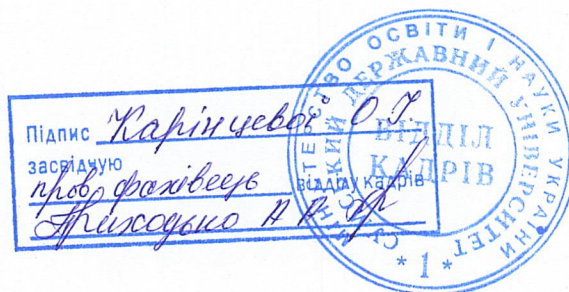 Підпис Карінцевої О.І.
засвідчую
пров. фахівець відділу кадрів
Приходько А.Р.
МІНІСТЕРСТВО ОСВІТИ І НАУКИ УКРАЇНИ
СУМСЬКИЙ ДЕРЖАВНИЙ УНІВЕРСИТЕТ
ВІДДІЛ
КАДРІВ
* 1 *